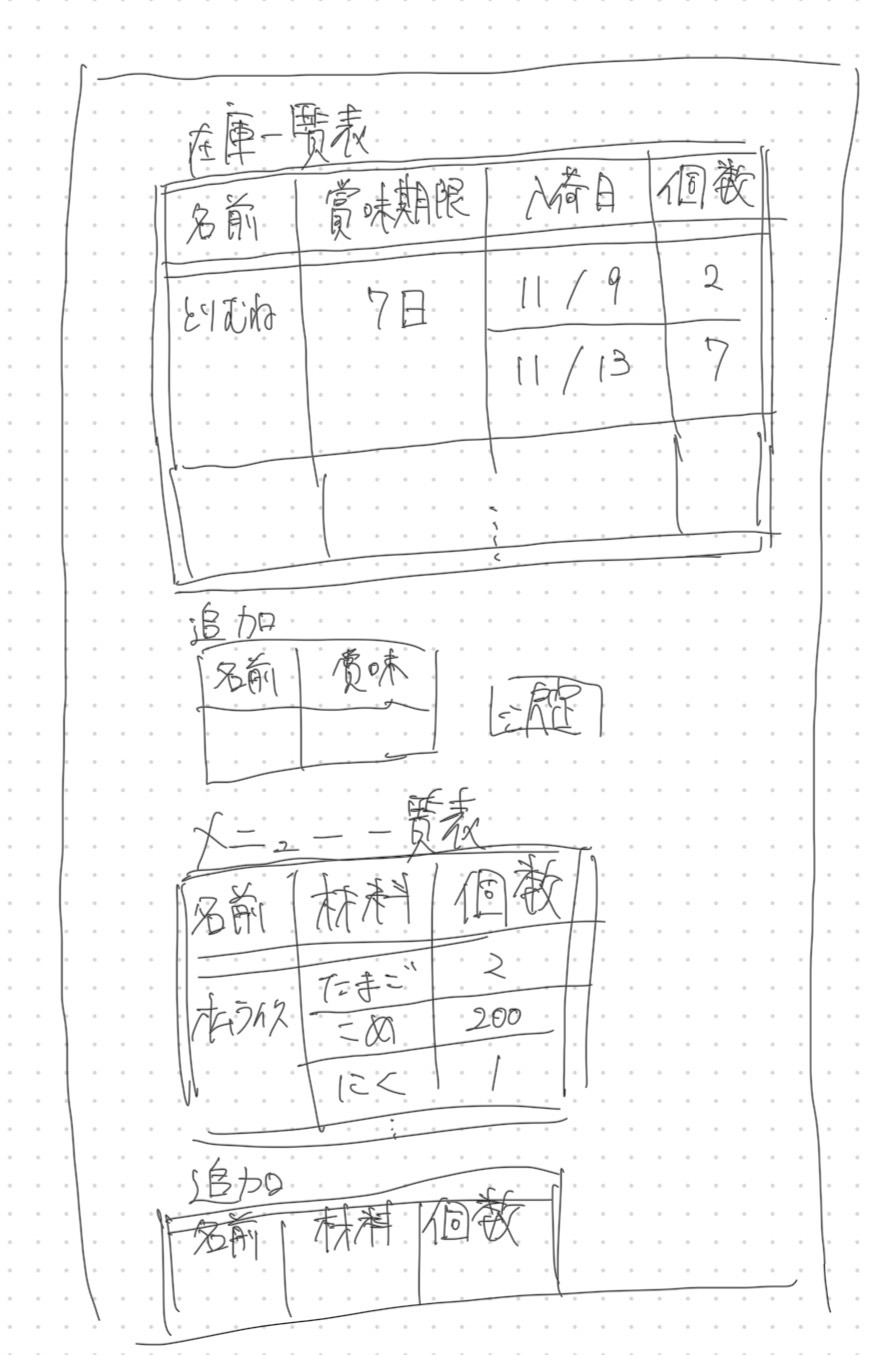 在庫一覧表
名前 賞味期限 入荷日 個数
とりむね 7日 11/9 2
11/13 7
追加
名前 賞味
確定
メニュー一覧表
名前 材料 個数
オムライス たまご 2
こめ 200
にく 1
追加
名前 材料 個数